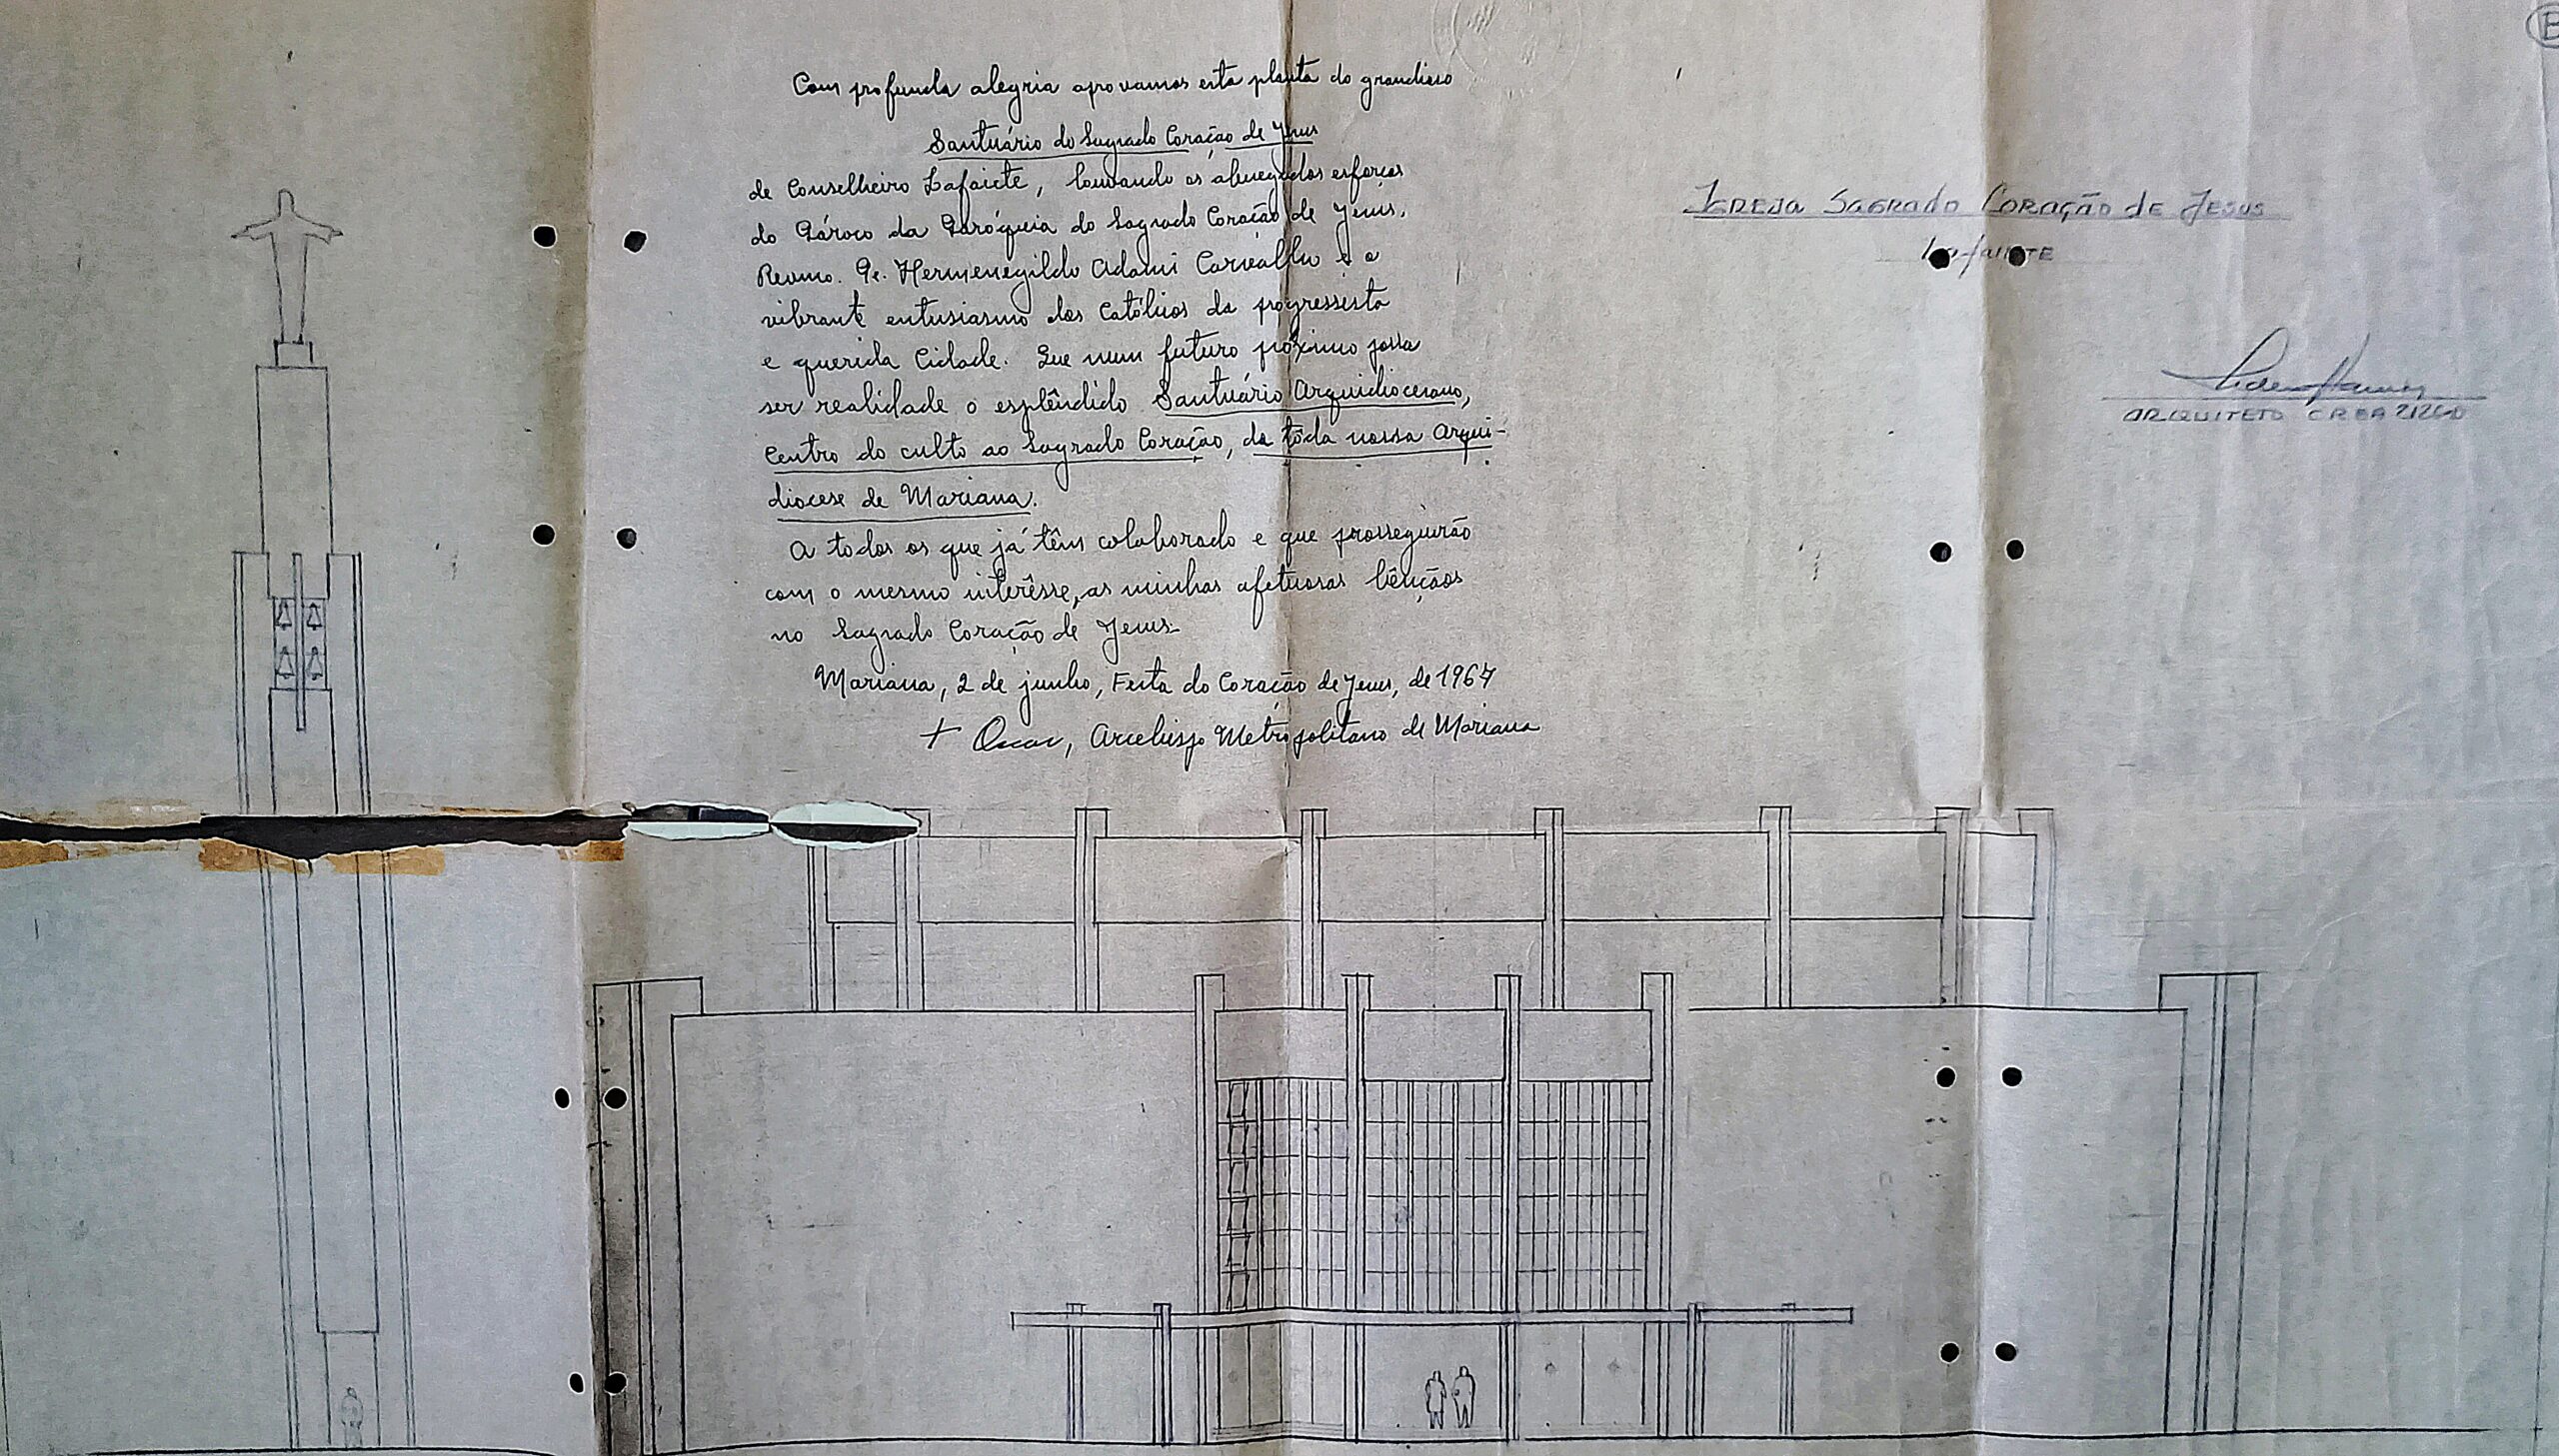 Com profunda alegria aprovamos esta planta do grandioso
Santuário do Sagrado Coração de Jesus
de Conselheiro Lafaiete, louvando os abnegados esforços
do Pároco da Paróquia do Sagrado Coração de Jesus,
Revmo. Pe. Hermenegildo Adami Carvalho e o
vibrante entusiasmo dos Católicos da progressista
e querida Cidade. Que num futuro próximo possa
ser realidade o esplêndido Santuário Arquidiocesano,
Centro do culto ao Sagrado Coração, da tôda nossa Arqui-
diocese de Mariana.
A todos os que já têm colaborado e que prosseguirão
com o mesmo interêsse, as minhas afetuosas bênçãos
no Sagrado Coração de Jesus.
Mariana, 2 de junho, Festa do Coração de Jesus, de 1967
+ Oscar, Arcebispo Metropolitano de Mariana
IGREJA SAGRADO CORAÇÃO DE JESUS
LafaiETE
ARQUITETO CREA
B